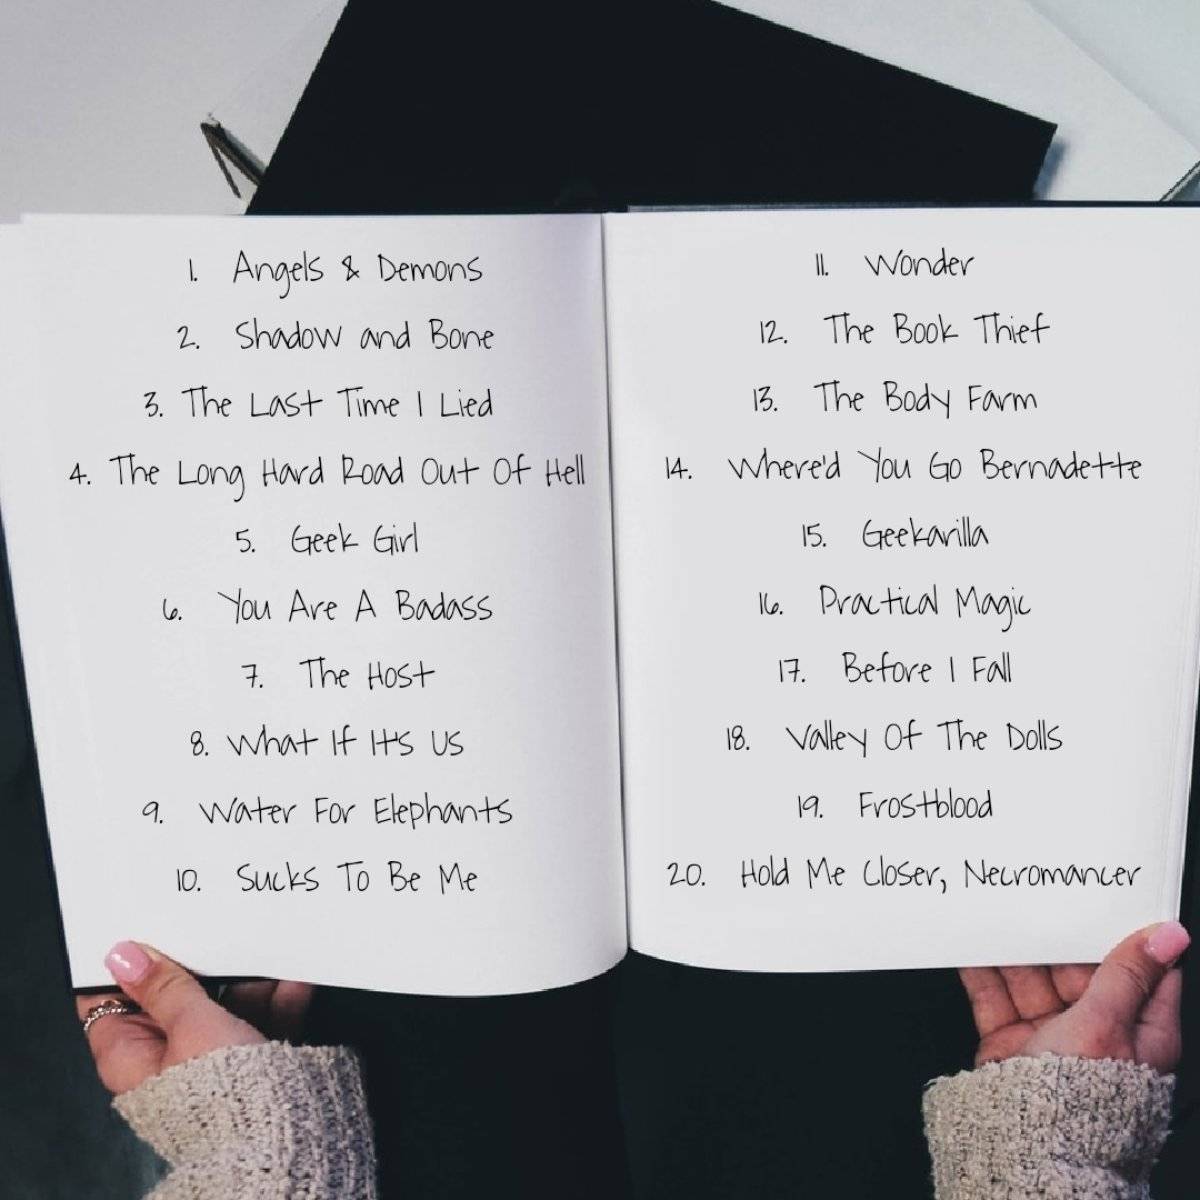 1. Angels & Demons
2. Shadow and Bone
3. The Last Time I Lied
4. The Long Hard Road Out Of Hell
5. Geek Girl
6. You Are A Badass
7. The Host
8. What If It's Us
9. Water For Elephants
10. Sucks To Be Me
11. Wonder
12. The Book Thief
13. The Body Farm
14. Where'd You Go Bernadette
15. Geekarilla
16. Practical Magic
17. Before I Fall
18. Valley Of The Dolls
19. Frostblood
20. Hold Me Closer, Necromancer